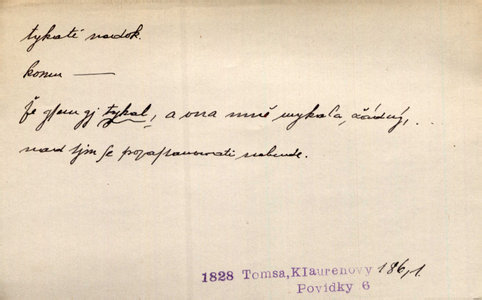 tykati nedok.
komu —
Že gsem gj tykal, a ona mně wykala, žádný, ..
nad tjm se pozastawowati nebude.
1828 Tomsa, Klaurenovy 186, 1.
Povídky 6